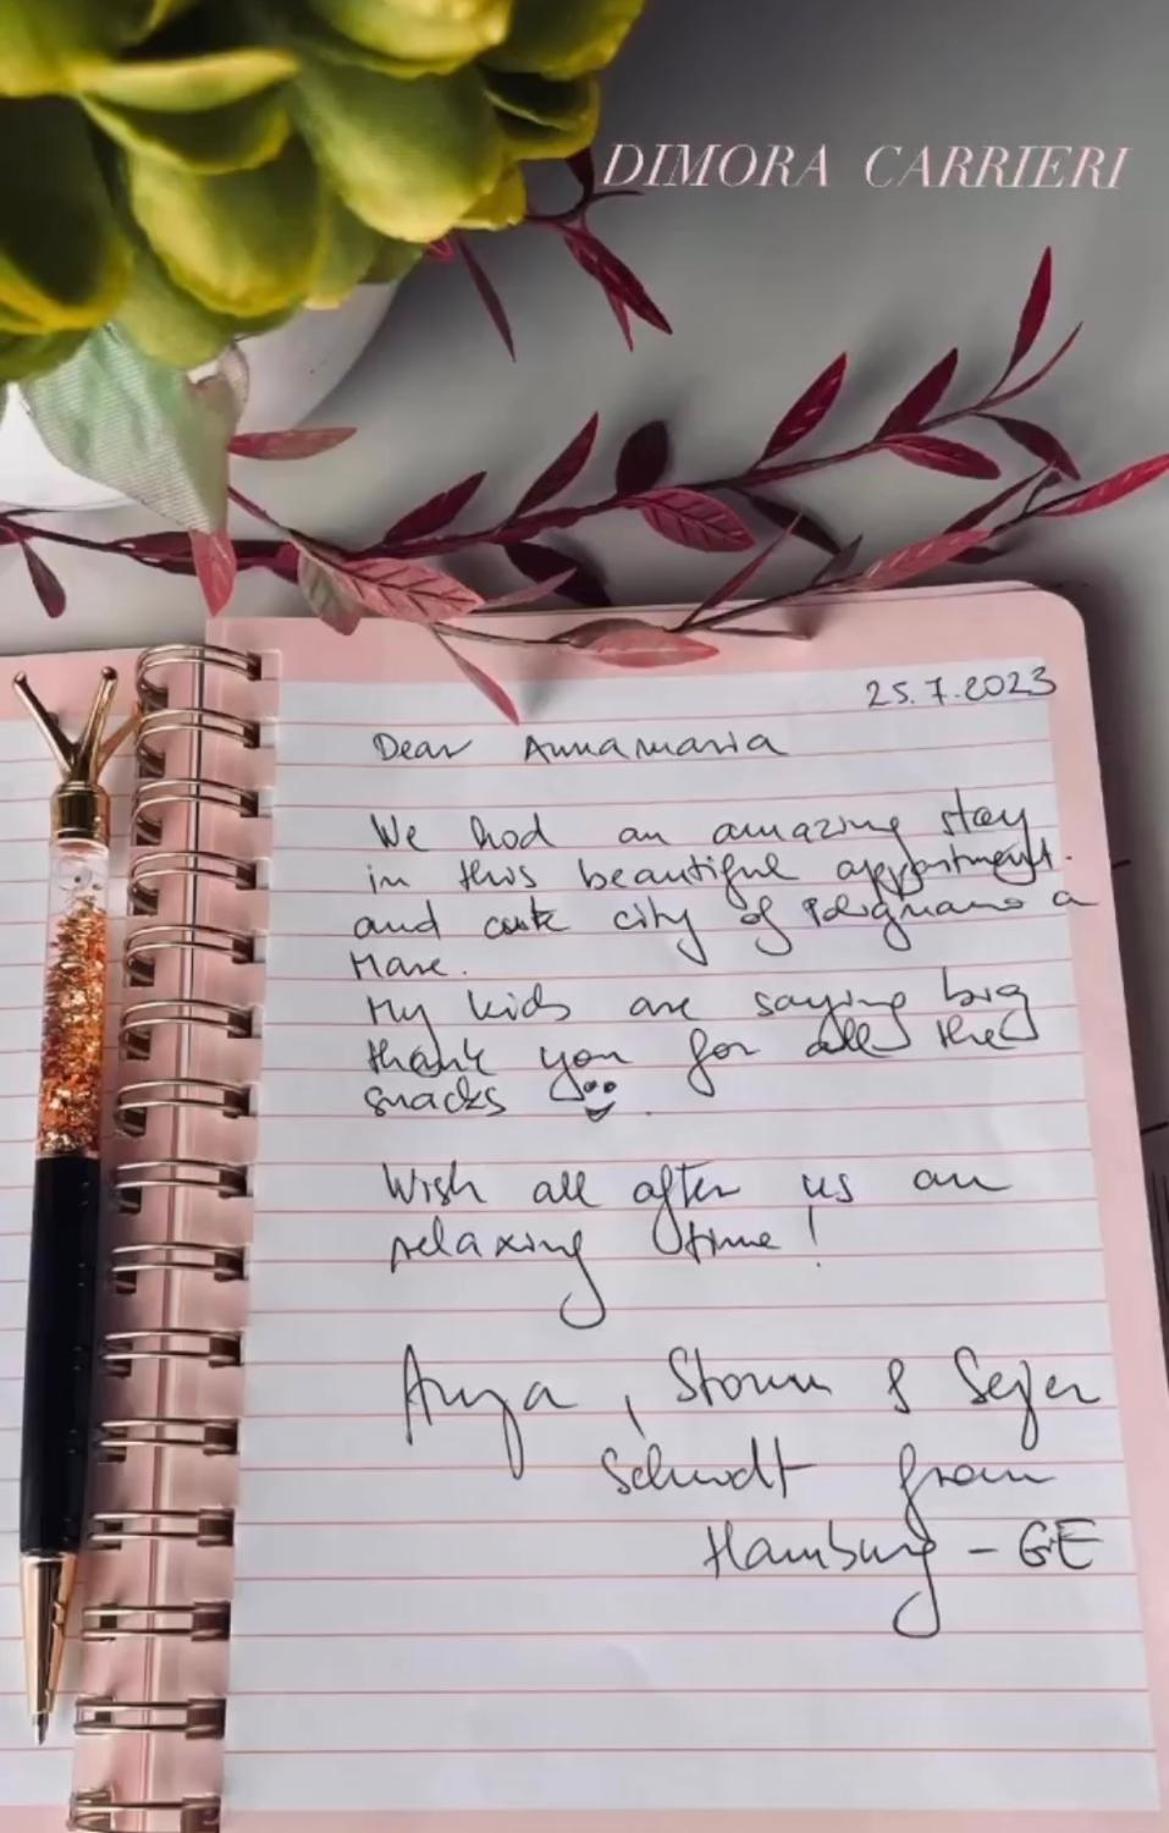 DIMORA CARRIERI
25.7.2023
Dear Annamaria
We had an amazing stay
in this beautiful appartment.
and city of Polignano a
Mare.
My kids are saying big
thank you for all the
snacks
Wish all after us an
relaxing time!
Anja, Storm & Sejer
Schmidt from
Hamburg - GE